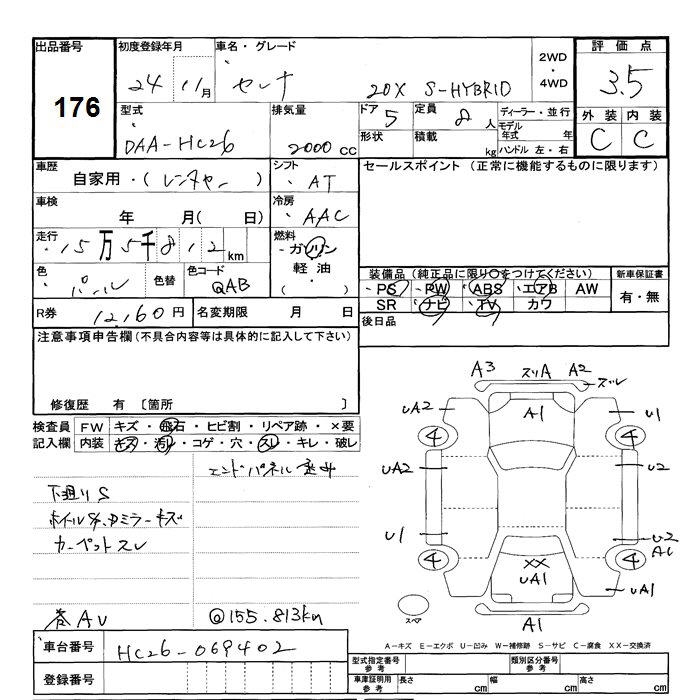 出品番号 初度登録年月 車名・グレード 2WD・4WD 評価点
176 24 11月 セレナ 20X S-HYBRID 3.5
型式 排気量 ドア 5 定員 8人 ディーラー・並行 外装 内装
DAA-HC26 2000cc 形状 積載 kg モデル年式 年 ハンドル 左・右 C C
車歴 自家用・(レンタカー) シフト AT セールスポイント (正常に機能するものに限ります)
車検 年 月( 日) 冷房 AAC
走行 15万5千812km 燃料 ガソリン・軽油・( )
色 パール 色替 色コード QAB 装備品(純正品に限り〇をつけてください) 新車保証書
PS PW ABS エアB AW 有・無
SR ナビ TV カワ
R券 12,160円 名変期限 月 日 後日品
注意事項申告欄(不具合内容等は具体的に記入して下さい)
修復歴 有 [箇所 ]
検査員記入欄 FW キズ・飛石・ヒビ割・リペア跡・×要
内装 キズ・汚れ・コゲ・穴・スレ・キレ・破レ
エンドパネル
下廻りS
ミラーキズ
カーペットスレ
AV @155.813km
A3 スリA A2 スレ
A1
UA2 U1
4 4
UA2 U2
U1 U2 A1
4 4
XX
UA1 UA1
スペア A1
車台番号 HC26-069402
A-キズ E-エクボ U-凹み W-補修跡 S-サビ C-腐食 XX-交換済
登録番号
型式指定番号 参考 類別区分番号 参考
車庫証明用 参考 長さ cm 幅 cm 高さ cm